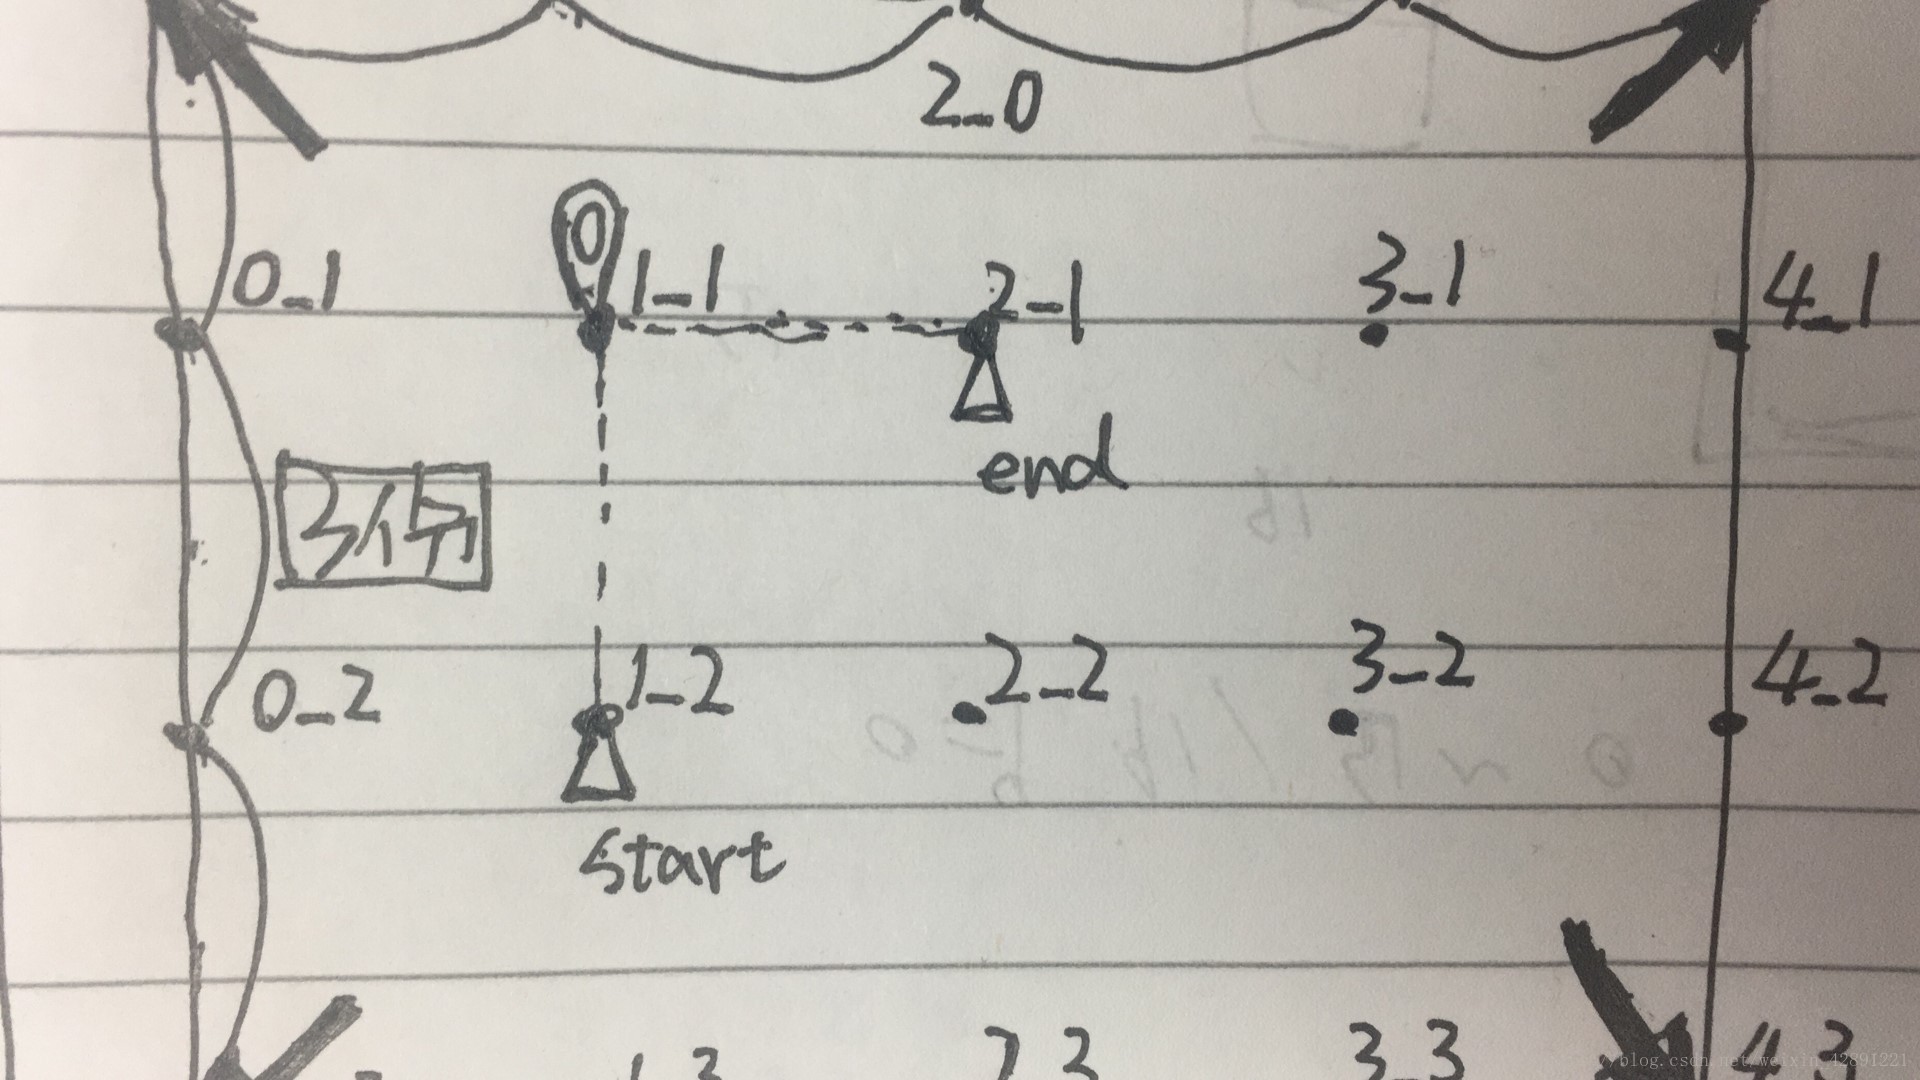 2_0
0
0_1 1_1 2_1 3_1 4_1
end
3份
0_2 1_2 2_2 3_2 4_2
start
1_3 2_3 3_3 4_3
//blog.csdn.net/weixin_42891221